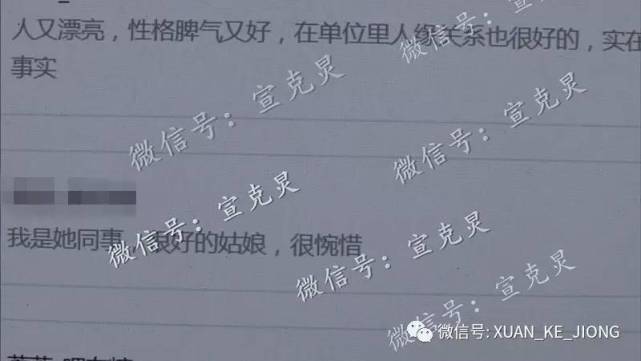 人又漂亮，性格脾气又好，在单位里人缘关系也很好的，实在
事实
微信号：宣克炅
微信号：宣克炅
微信号：宣克炅
微信号：宣克炅
我是她同事，很好的姑娘，很惋惜
微信号：宣克炅
微信号：宣克炅
微信号：宣克炅
微信号: XUAN_KE_JIONG